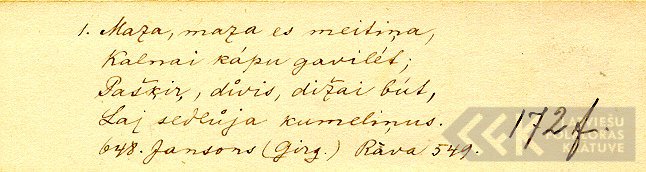 1. Maza, maza es meitiņa,
Kalnai kápu gavilét;
Pašķiŗ, důvis, dižai bút,
Laj sedlůja kumeliņus.
648. Jansons (Girg.) Rāva 549.
172f.
LATVIEŠU
FOLKLORAS
KRĀTUVE